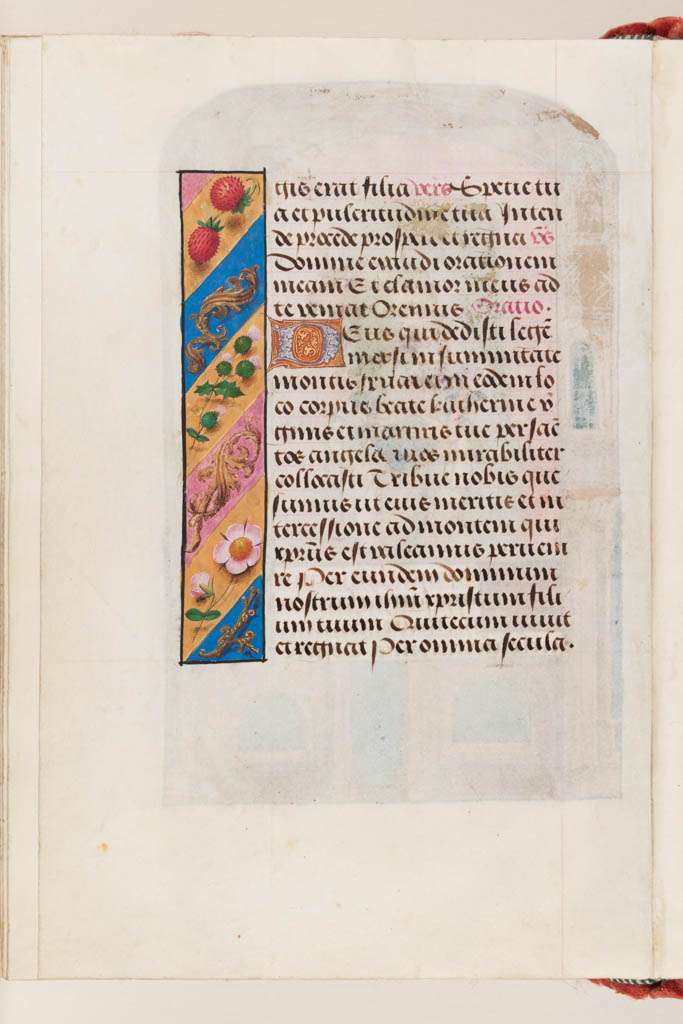 gis erat filia vers Spetie tu
a et pulcritudine tua Inten
de procede prospere et regna vs
Domine exaudi orationem
meam Et clamor meus ad
te veniat Oremus Oratio.
Deus qui dedisti legē
moysi in summitate
montis synai et in eodem lo
co corpus beate katherine v̄
ginis et martiris tue per sāc
tos angelos tuos mirabiliter
collocasti Tribue nobis que
sumus ut eius meritis et in
tercessione ad montem qui
xp̄us est valeamus perueni
re Per eundem dominum
nostrum ihm̄ xpristum fili
um tuum Qui tecum uiuit
et regnat Per omnia secula.